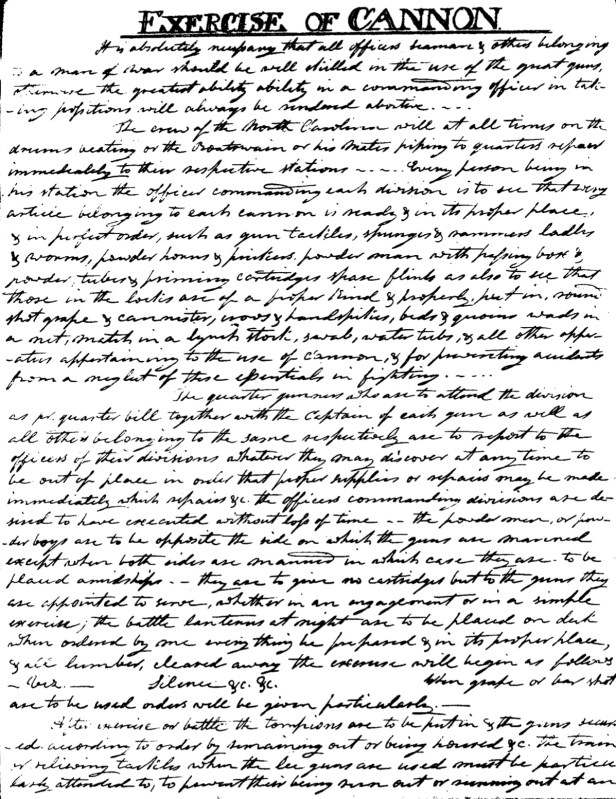 EXERCISE OF CANNON
It is absolutely necessary that all officers seamen & others belonging
to a man of war should be well skilled in the use of the great guns,
otherwise the greatest ability ability in a commanding officer in tak-
-ing positions will always be rendered abortive. - - -
The crew of the North Carolina will at all times on the
drums beating or the Boatswain or his Mates piping to quarters repair
immediately to their respective stations - - - - Every person being in
his station the officer commanding each division is to see that every
article belonging to each cannon is ready & in its proper place,
& in perfect order, such as gun tackles, spunges & rammers ladles
& worms, powder horns & prickers, powder man with passing box's
powder, tubes & priming cartridges spare flints as also to see that
those in the locks are of a proper kind & properly put in, round
shot grape & cannister, crows & handspikes, beds & quoins wads in
a net, match in a lynch stock, swab, water tubs, & all other apper-
-atus appertaining to the use of Cannon, & for preventing accidents
from a neglect of these essentials in fighting. - - - -
The quarter gunners who are to attend the division
as pr. quarter bill together with the Captain of each gun as well as
all others belonging to the same respectively are to report to the
officers of their divisions whatever they may discover at any time to
be out of place in order that proper supplies or repairs may be made
immediately which repairs &c. the officers commanding divisions are de-
sired to have executed without loss of time - - the powder men, or pow-
-der boys are to be opposite the side on which the guns are manned
except when both sides are manned in which case they are to be
placed amidships - - they are to give no cartridges but to the guns they
are appointed to serve, whether in an engagement or in a simple
exercise; the battle lanterns at night are to be placed on deck
when ordered by me every thing be prepared & in its proper place,
& all lumber, cleared away the exercise will begin as follows
- Viz. - Silence &c. &c. When grape or bar shot
are to be used orders will be given particularly. -
After exercise or battle the tompions are to be put in & the guns secur
-ed according to order by remaining out or being housed &c. The train
or relieving tackles when the lee guns are used must be particu
larly attended to, to prevent their being run out or running out at an